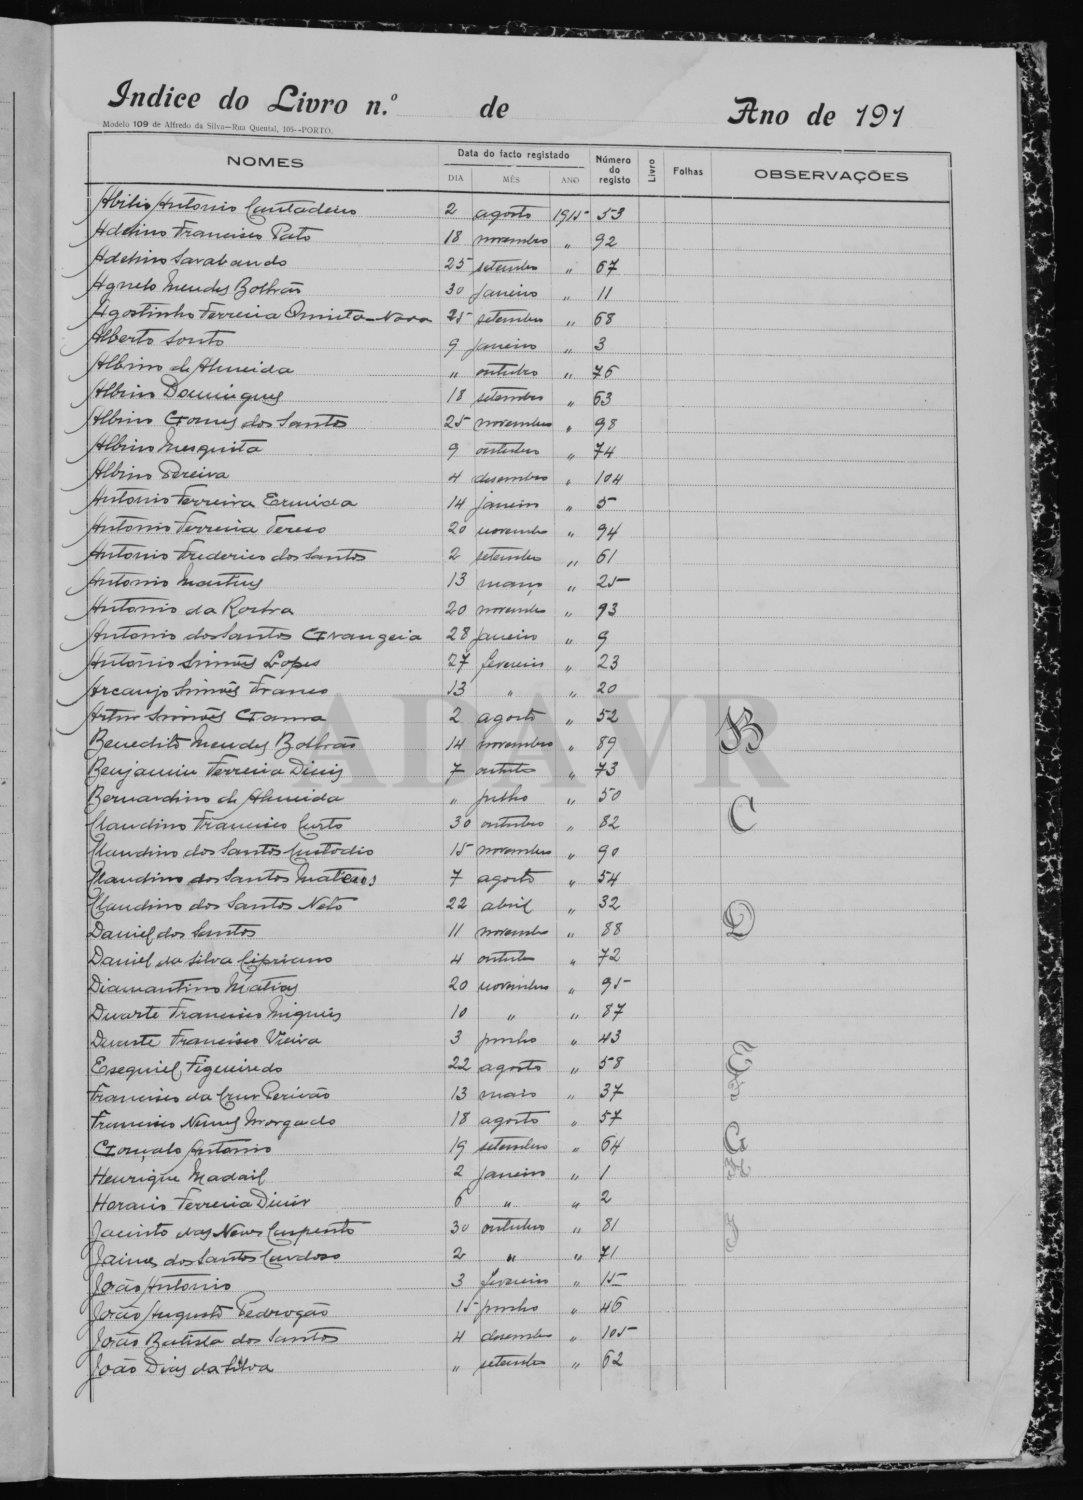 Indice do Livro n.º de Ano de 191
Modelo 109 de Alfredo da Silva—Rua Quental, 105--PORTO.
NOMES Data do facto registado Número do registo Livro Folhas OBSERVAÇÕES
DIA MÊS ANO
Abilio Antonio Cantadeiro 2 agosto 1915 53
Adelino Francisco Pato 18 novembro " 92
Adelino Sarabando 25 setembro " 67
Agnelo Mendes Bolhão 30 janeiro " 11
Agostinho Ferreira Quinta-Nova 25 setembro " 68
Alberto Souto 9 janeiro " 3
Albino de Almeida " outubro " 76
Albino Domingues 18 setembro " 63
Albino Gomes dos Santos 25 novembro " 98
Albino Mesquita 9 outubro " 74
Albino Pereira 4 desembro " 104
Antonio Ferreira Ermida 14 janeiro " 5
Antonio Ferreira 20 novembro " 94
Antonio Frederico dos Santos 2 setembro " 61
Antonio Martins 13 março " 25
Antonio da Rocha 20 novembro " 93
Antonio dos Santos Grangeia 28 janeiro " 9
Antonio Simões Lopes 27 fevereiro " 23
Arcanjo Simões Franco 13 " " 20
Artur Simões Gama 2 agosto " 52
Benedito Mendes Bolhão 14 novembro " 89 B
Benjamim Ferreira Dinis 7 outubro " 73
Bernardino de Almeida " julho " 50
Claudino Francisco Curto 30 outubro " 82 C
Claudino dos Santos Custodio 15 novembro " 90
Claudino dos Santos Mateus 7 agosto " 54
Claudino dos Santos Neto 22 abril " 32
Daniel dos Santos 11 novembro " 88 D
Daniel da Silva Cipriano 4 outubro " 72
Diamantino Matias 20 novembro " 95
Duarte Francisco Migueis 10 " " 87
Duarte Francisco Vieira 3 junho " 43
Esequiel Figueiredo 22 agosto " 58 E
Francisco da Cruz Perição 13 maio " 37 F
Francisco Nunes Morgado 18 agosto " 57
Gonçalo Antonio 19 setembro " 64 G
Henrique Madail 2 janeiro " 1 H
Horacio Ferreira Dinis 6 " " 2
Jacinto das Neves 30 outubro " 81 J
Jaime dos Santos Cardoso 2 " " 71
João Antonio 3 fevereiro " 15
João Augusto Pedrogão 15 junho " 46
João Batista dos Santos 4 desembro " 105
João Dias da Silva " setembro " 62
ADAVR